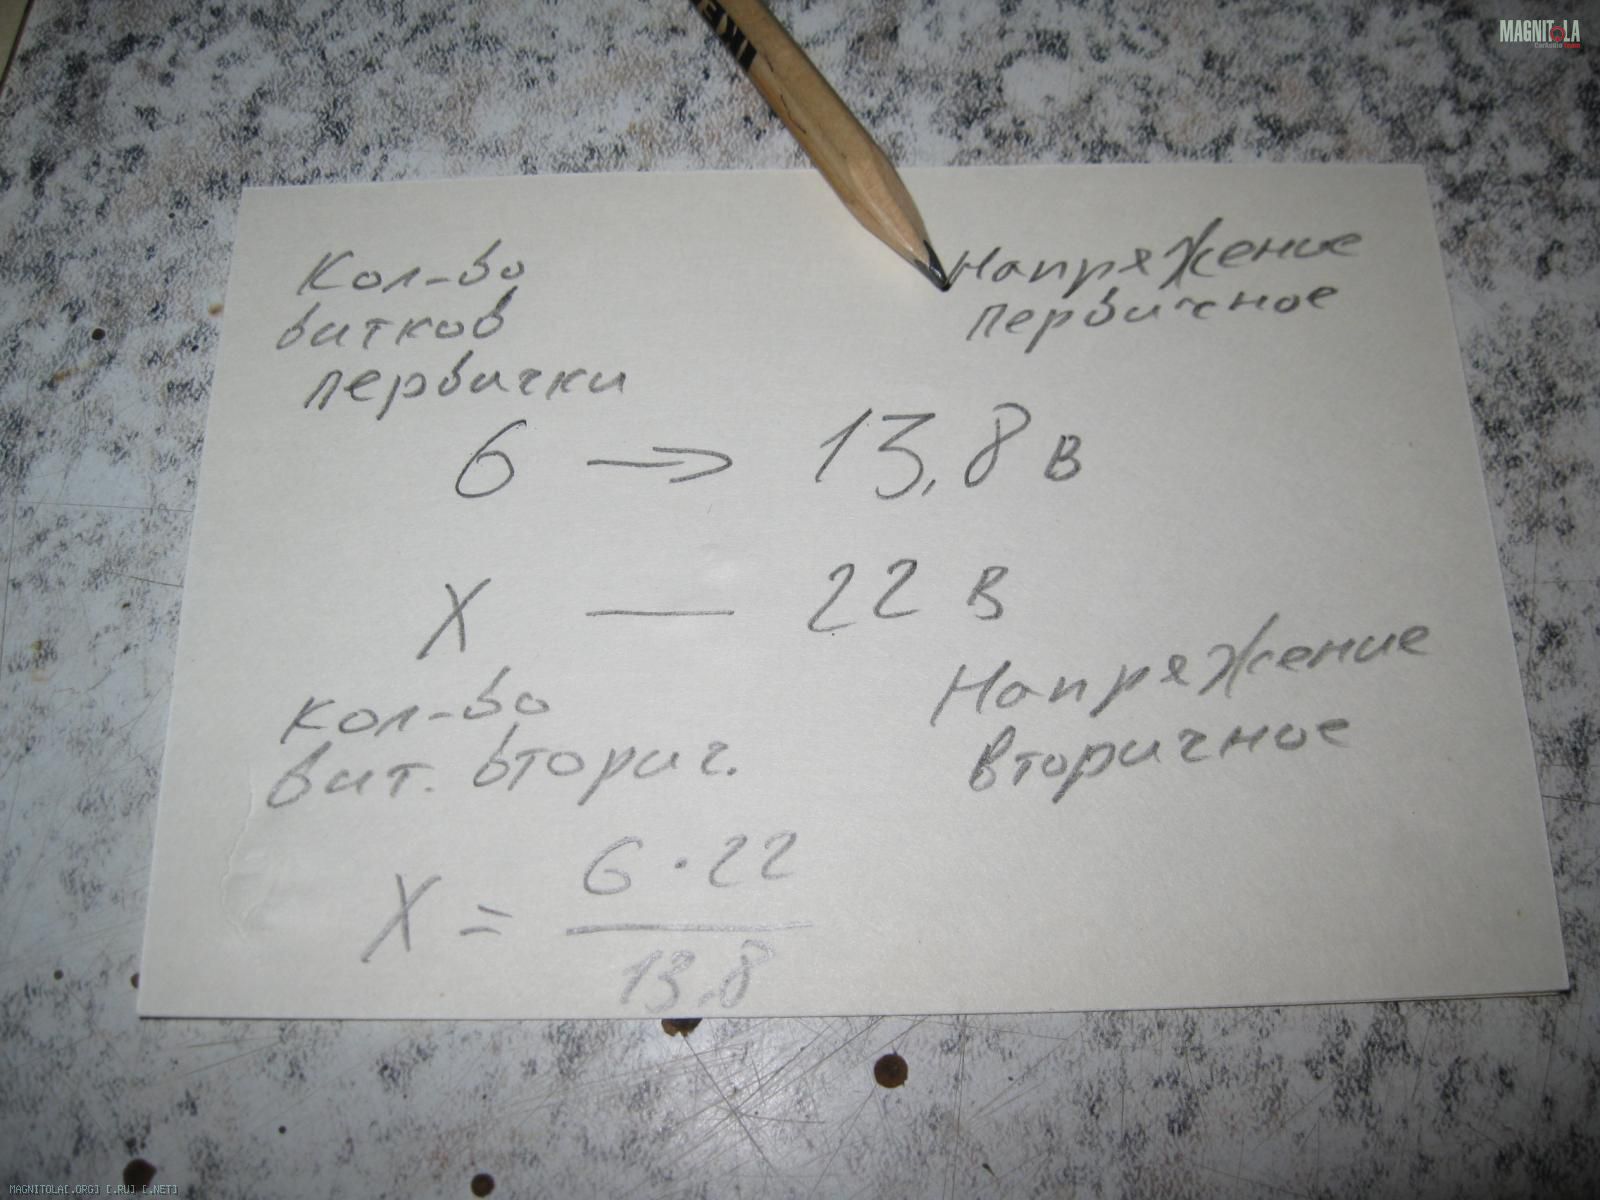 MAGNITOLA
CarAudio Team
Кол-во
витков
первички
Напряжение
первичное
6 → 13,8 в
X — 22 в
кол-во
вит. вторич.
Напряжение
вторичное
X = 6 · 22
13,8
MAGNITOLA[.ORG] [.RU] [.NET]